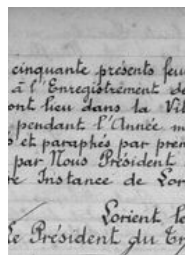 cinquante présents feu
à l'Enregistrement de
ont lieu dans la Vil
pendant l'Année m
s et paraphés par prem
par Nous Président
e Instance de Lor
Lorient le
Le Président du Tr